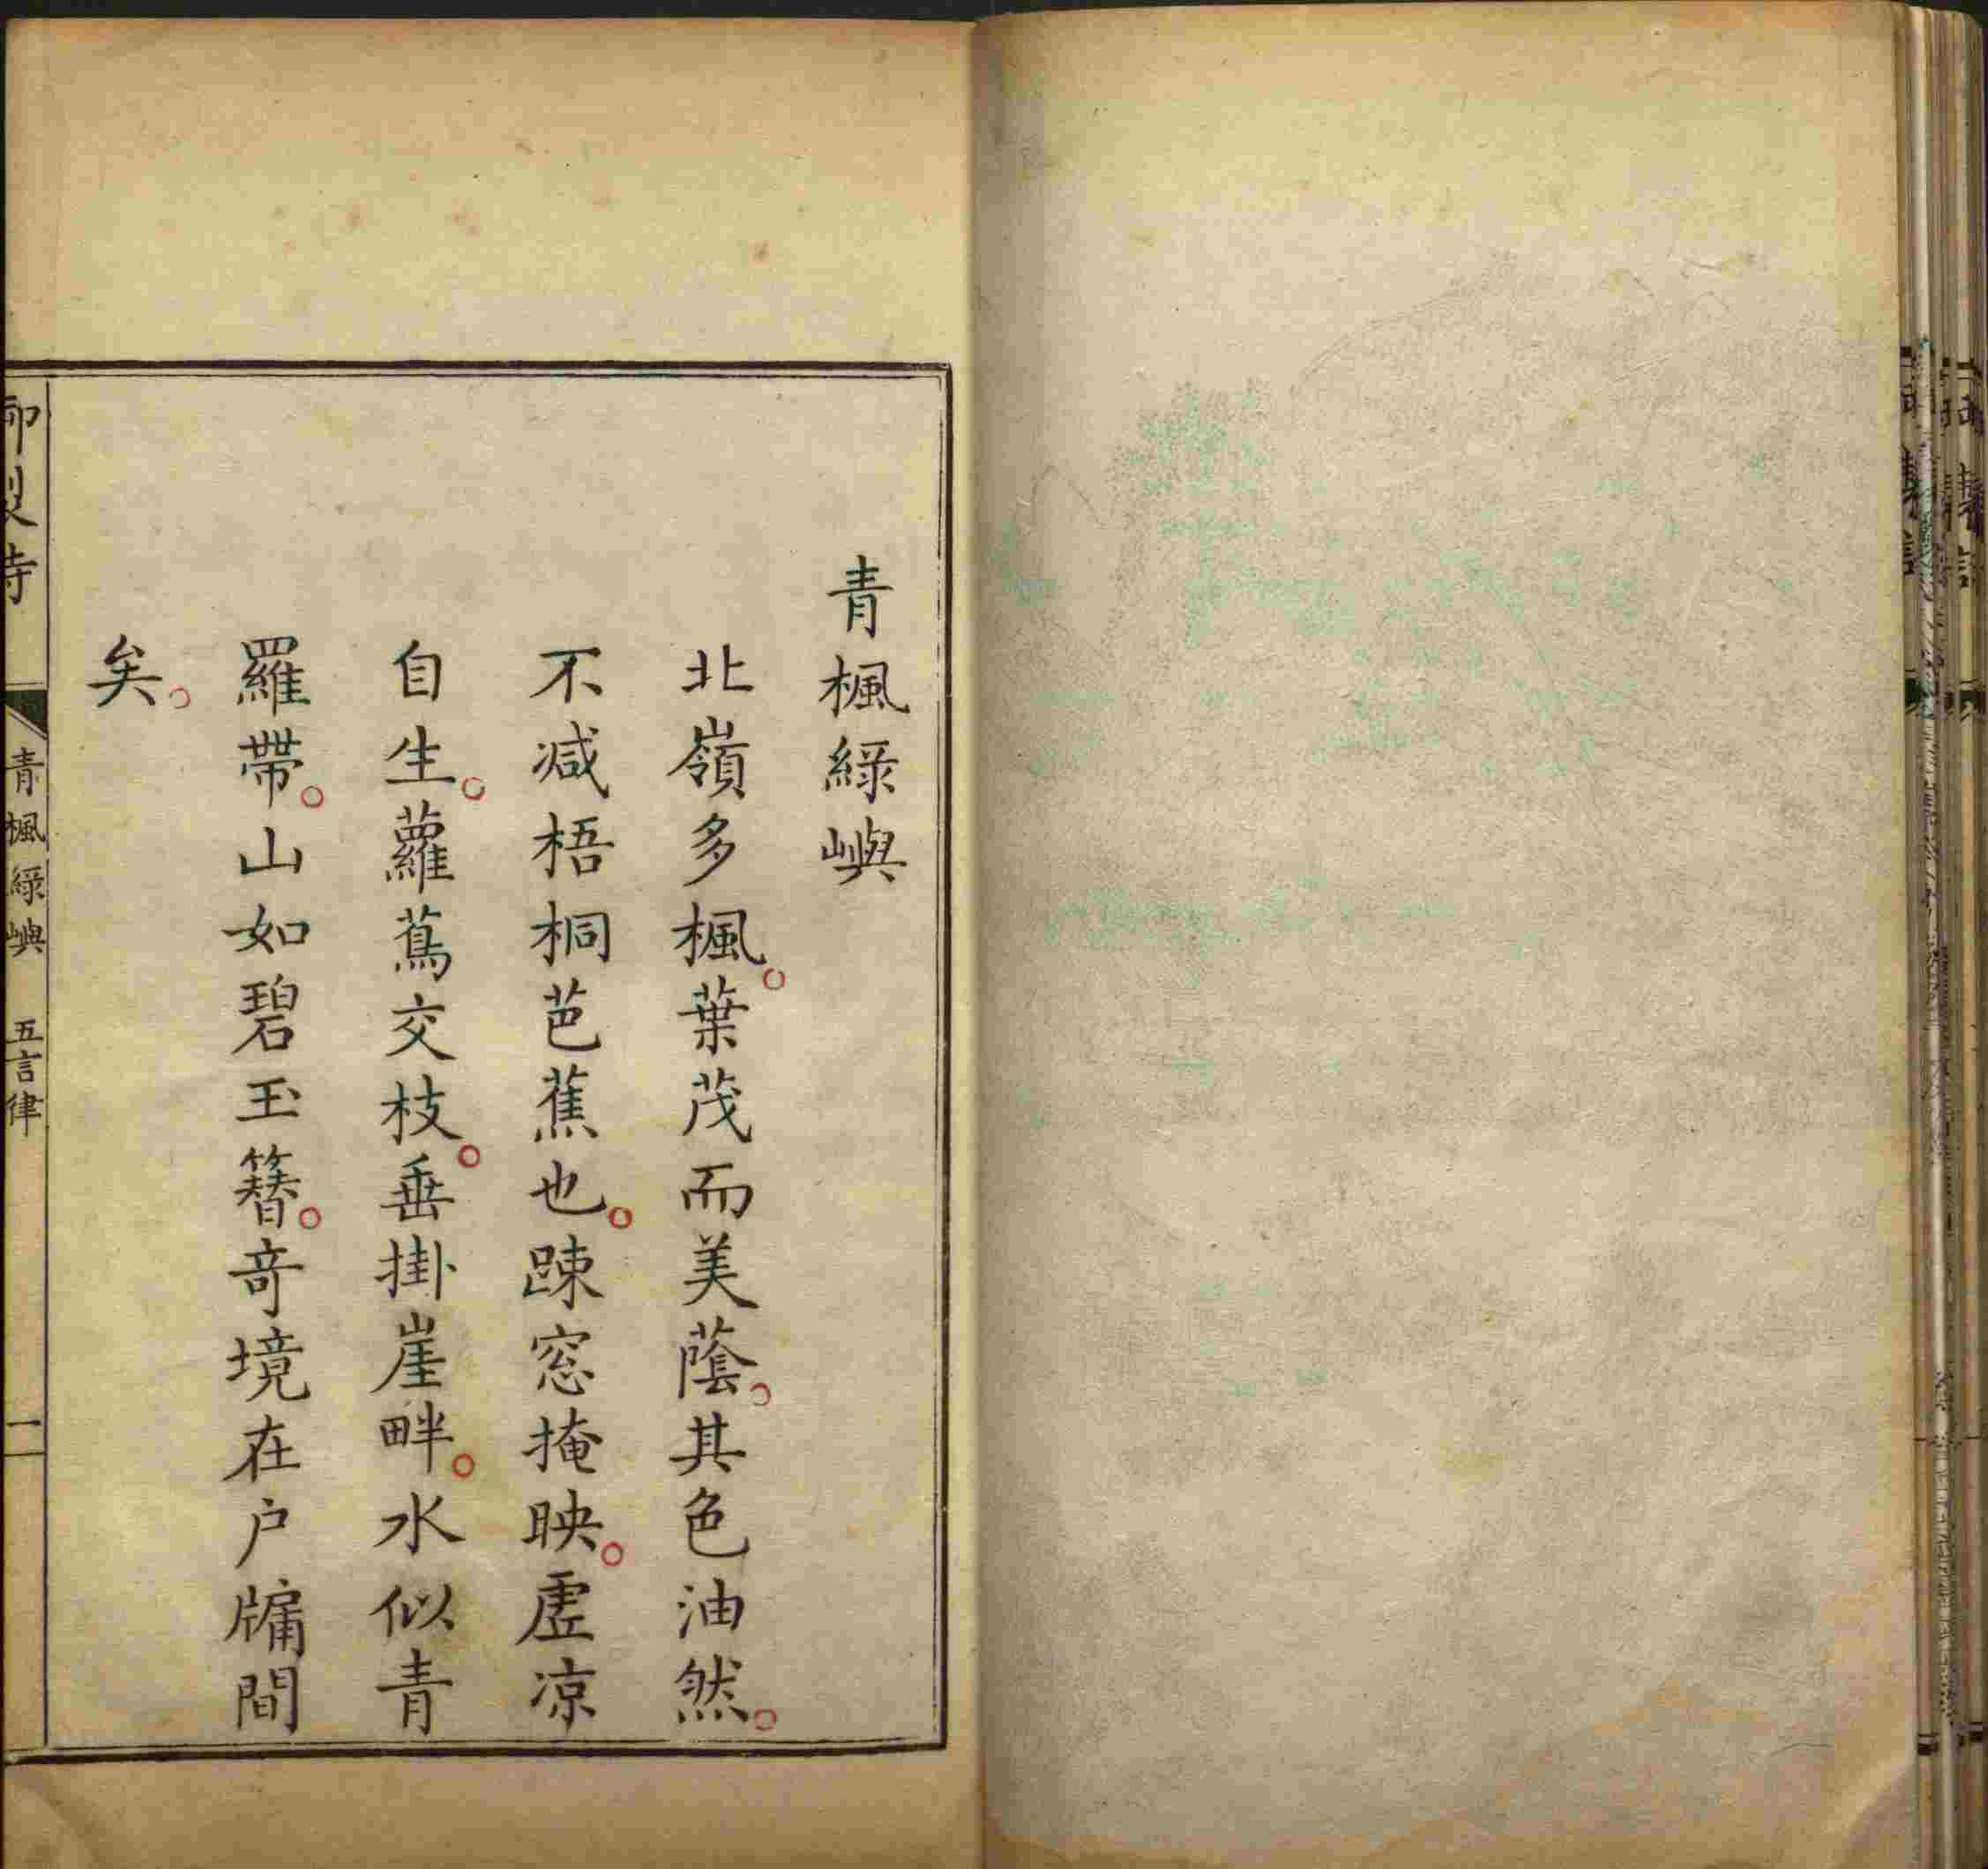 青楓綠嶼
北嶺多楓。葉茂而美蔭。其色油然。
不減梧桐芭蕉也。踈窓掩映。虛凉
自生。蘿蔦交枝。垂掛崖畔。水似青
羅帶。山如碧玉簪。竒境在户牖間
矣。
御製詩 青楓綠嶼 五言律 一